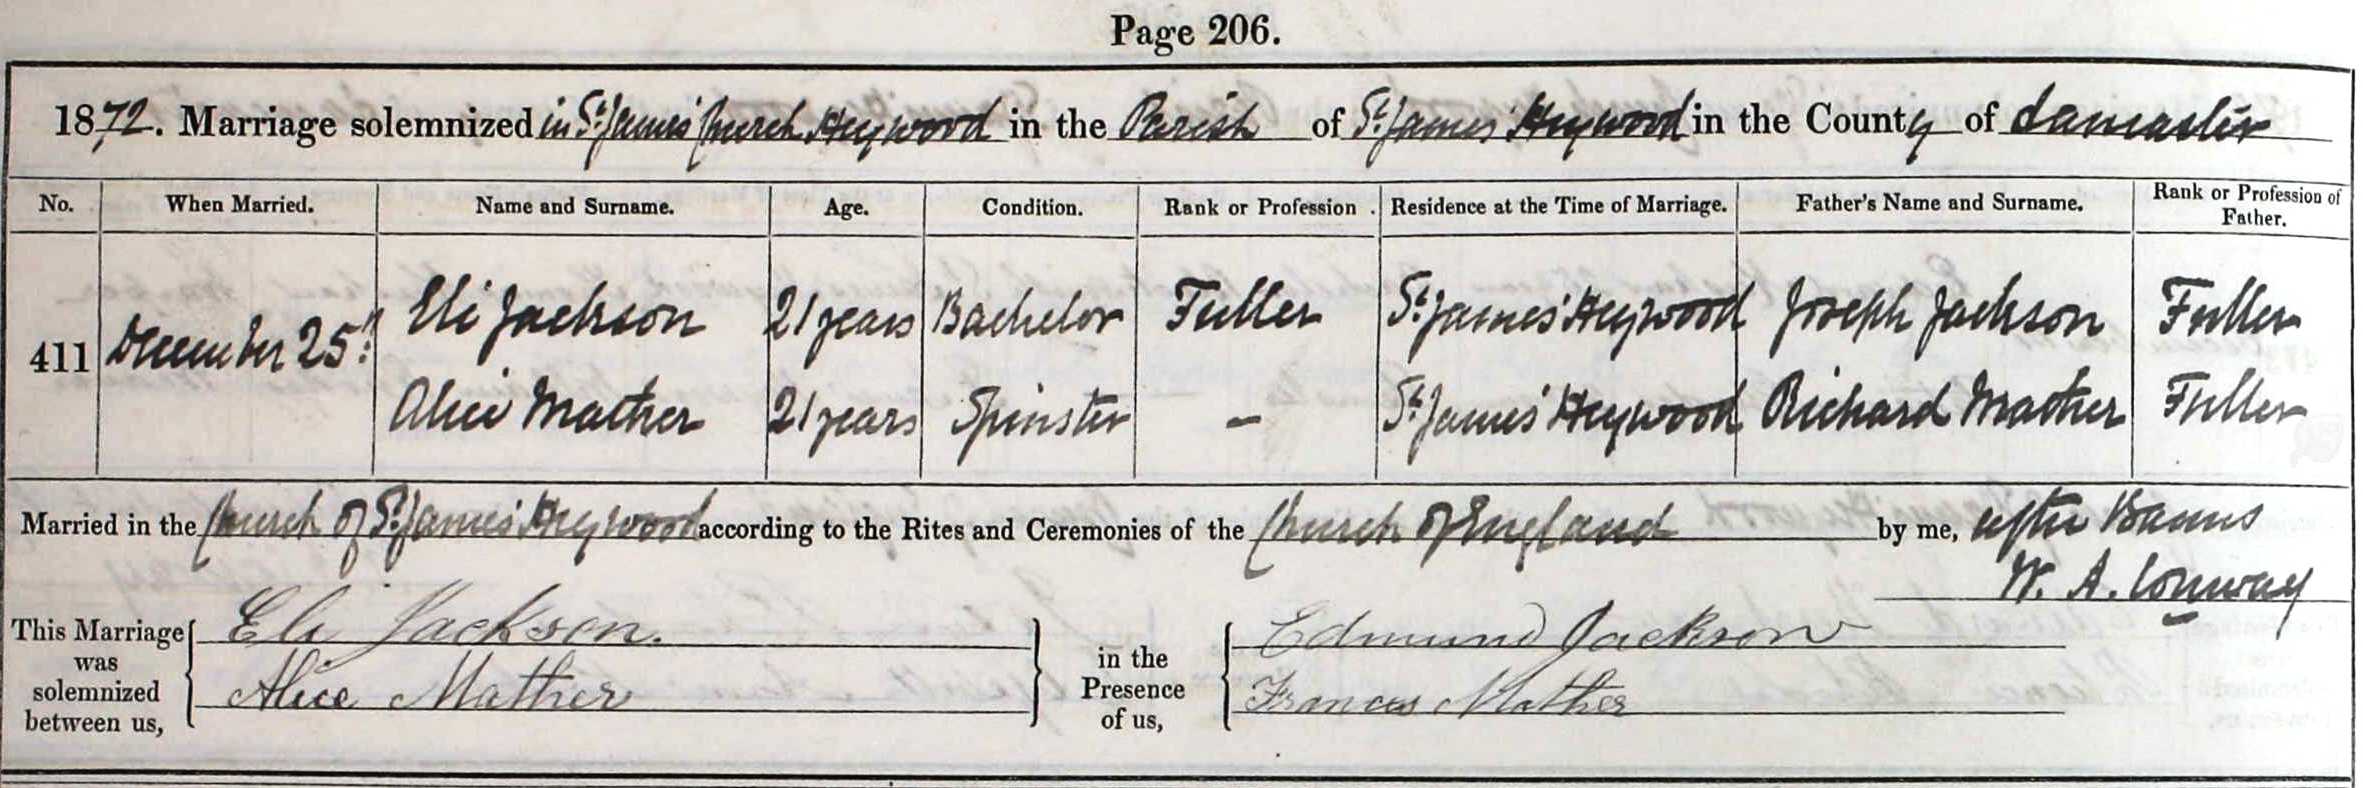 Page 206.
1872. Marriage solemnized in St. James' Church Heywood in the Parish of St. James' Heywood in the County of Lancaster
No. When Married. Name and Surname. Age. Condition. Rank or Profession. Residence at the Time of Marriage. Father's Name and Surname. Rank or Profession of Father.
411 December 25th Eli Jackson 21 years Bachelor Fuller St. James' Heywood Joseph Jackson Fuller
Alice Mather 21 years Spinster — St. James' Heywood Richard Mather Fuller
Married in the Church of St. James' Heywood according to the Rites and Ceremonies of the Church of England by me, after Banns
W. A. Conway
This Marriage was solemnized between us, { Eli Jackson. } in the Presence of us, { Edmund Jackson
Alice Mather Frances Mather